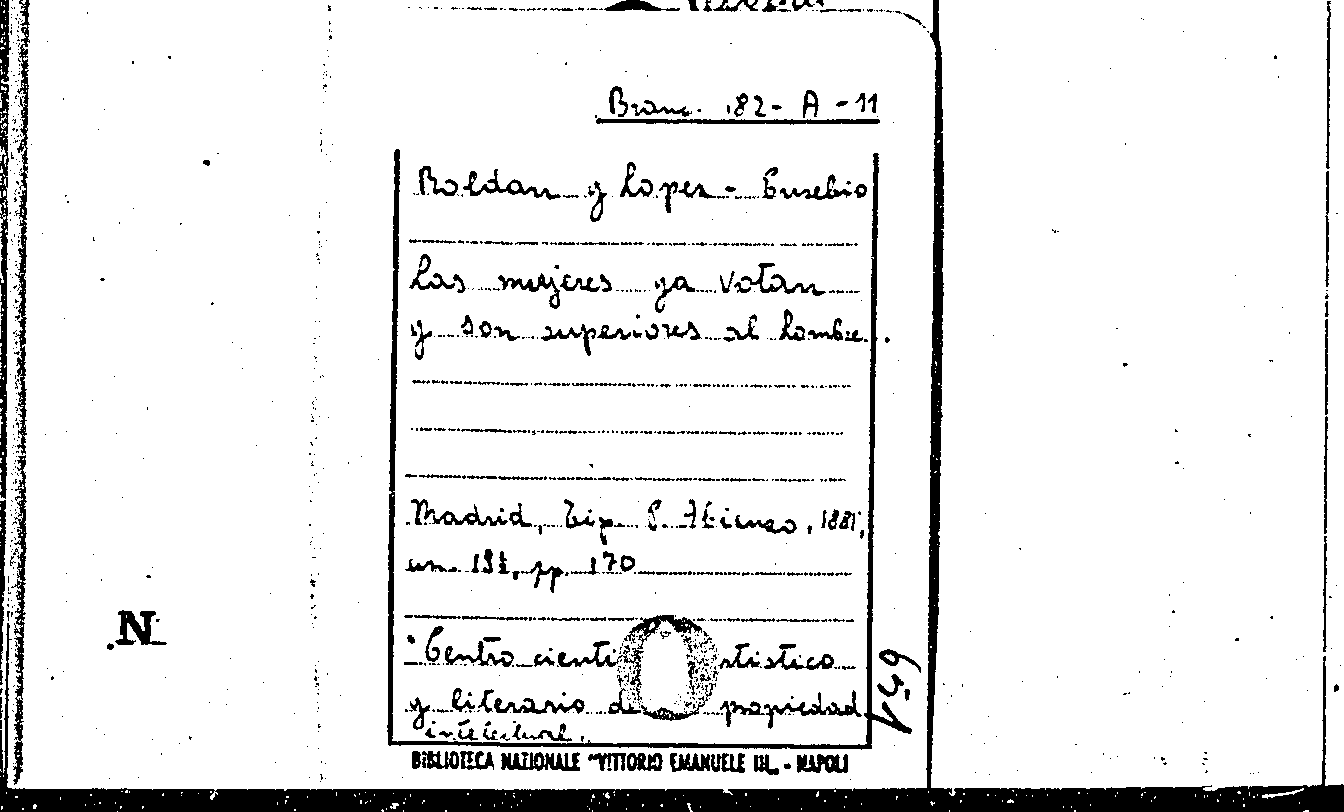 Branc. 182 - A - 11
Roldan y Lopez - Eusebio
Las mujeres ya votan
y son superiores al hombre.
Madrid, Tip. P. Atienza, 1881,
pp. 170
Centro cienti artistico
y literario de propiedad
intelectual.
BIBLIOTECA NAZIONALE "VITTORIO EMANUELE III„ - NAPOLI
N